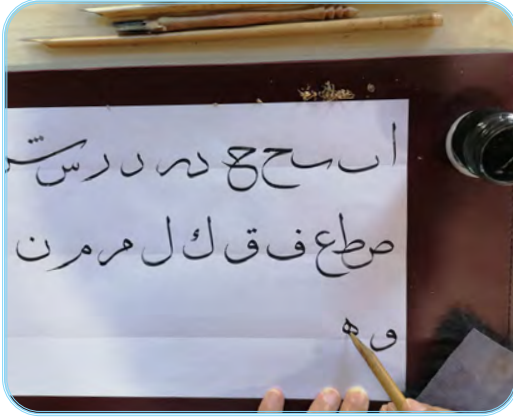 ا ح ح د د ر س
ص ط ع ف ق ك ل م م ن
و ه